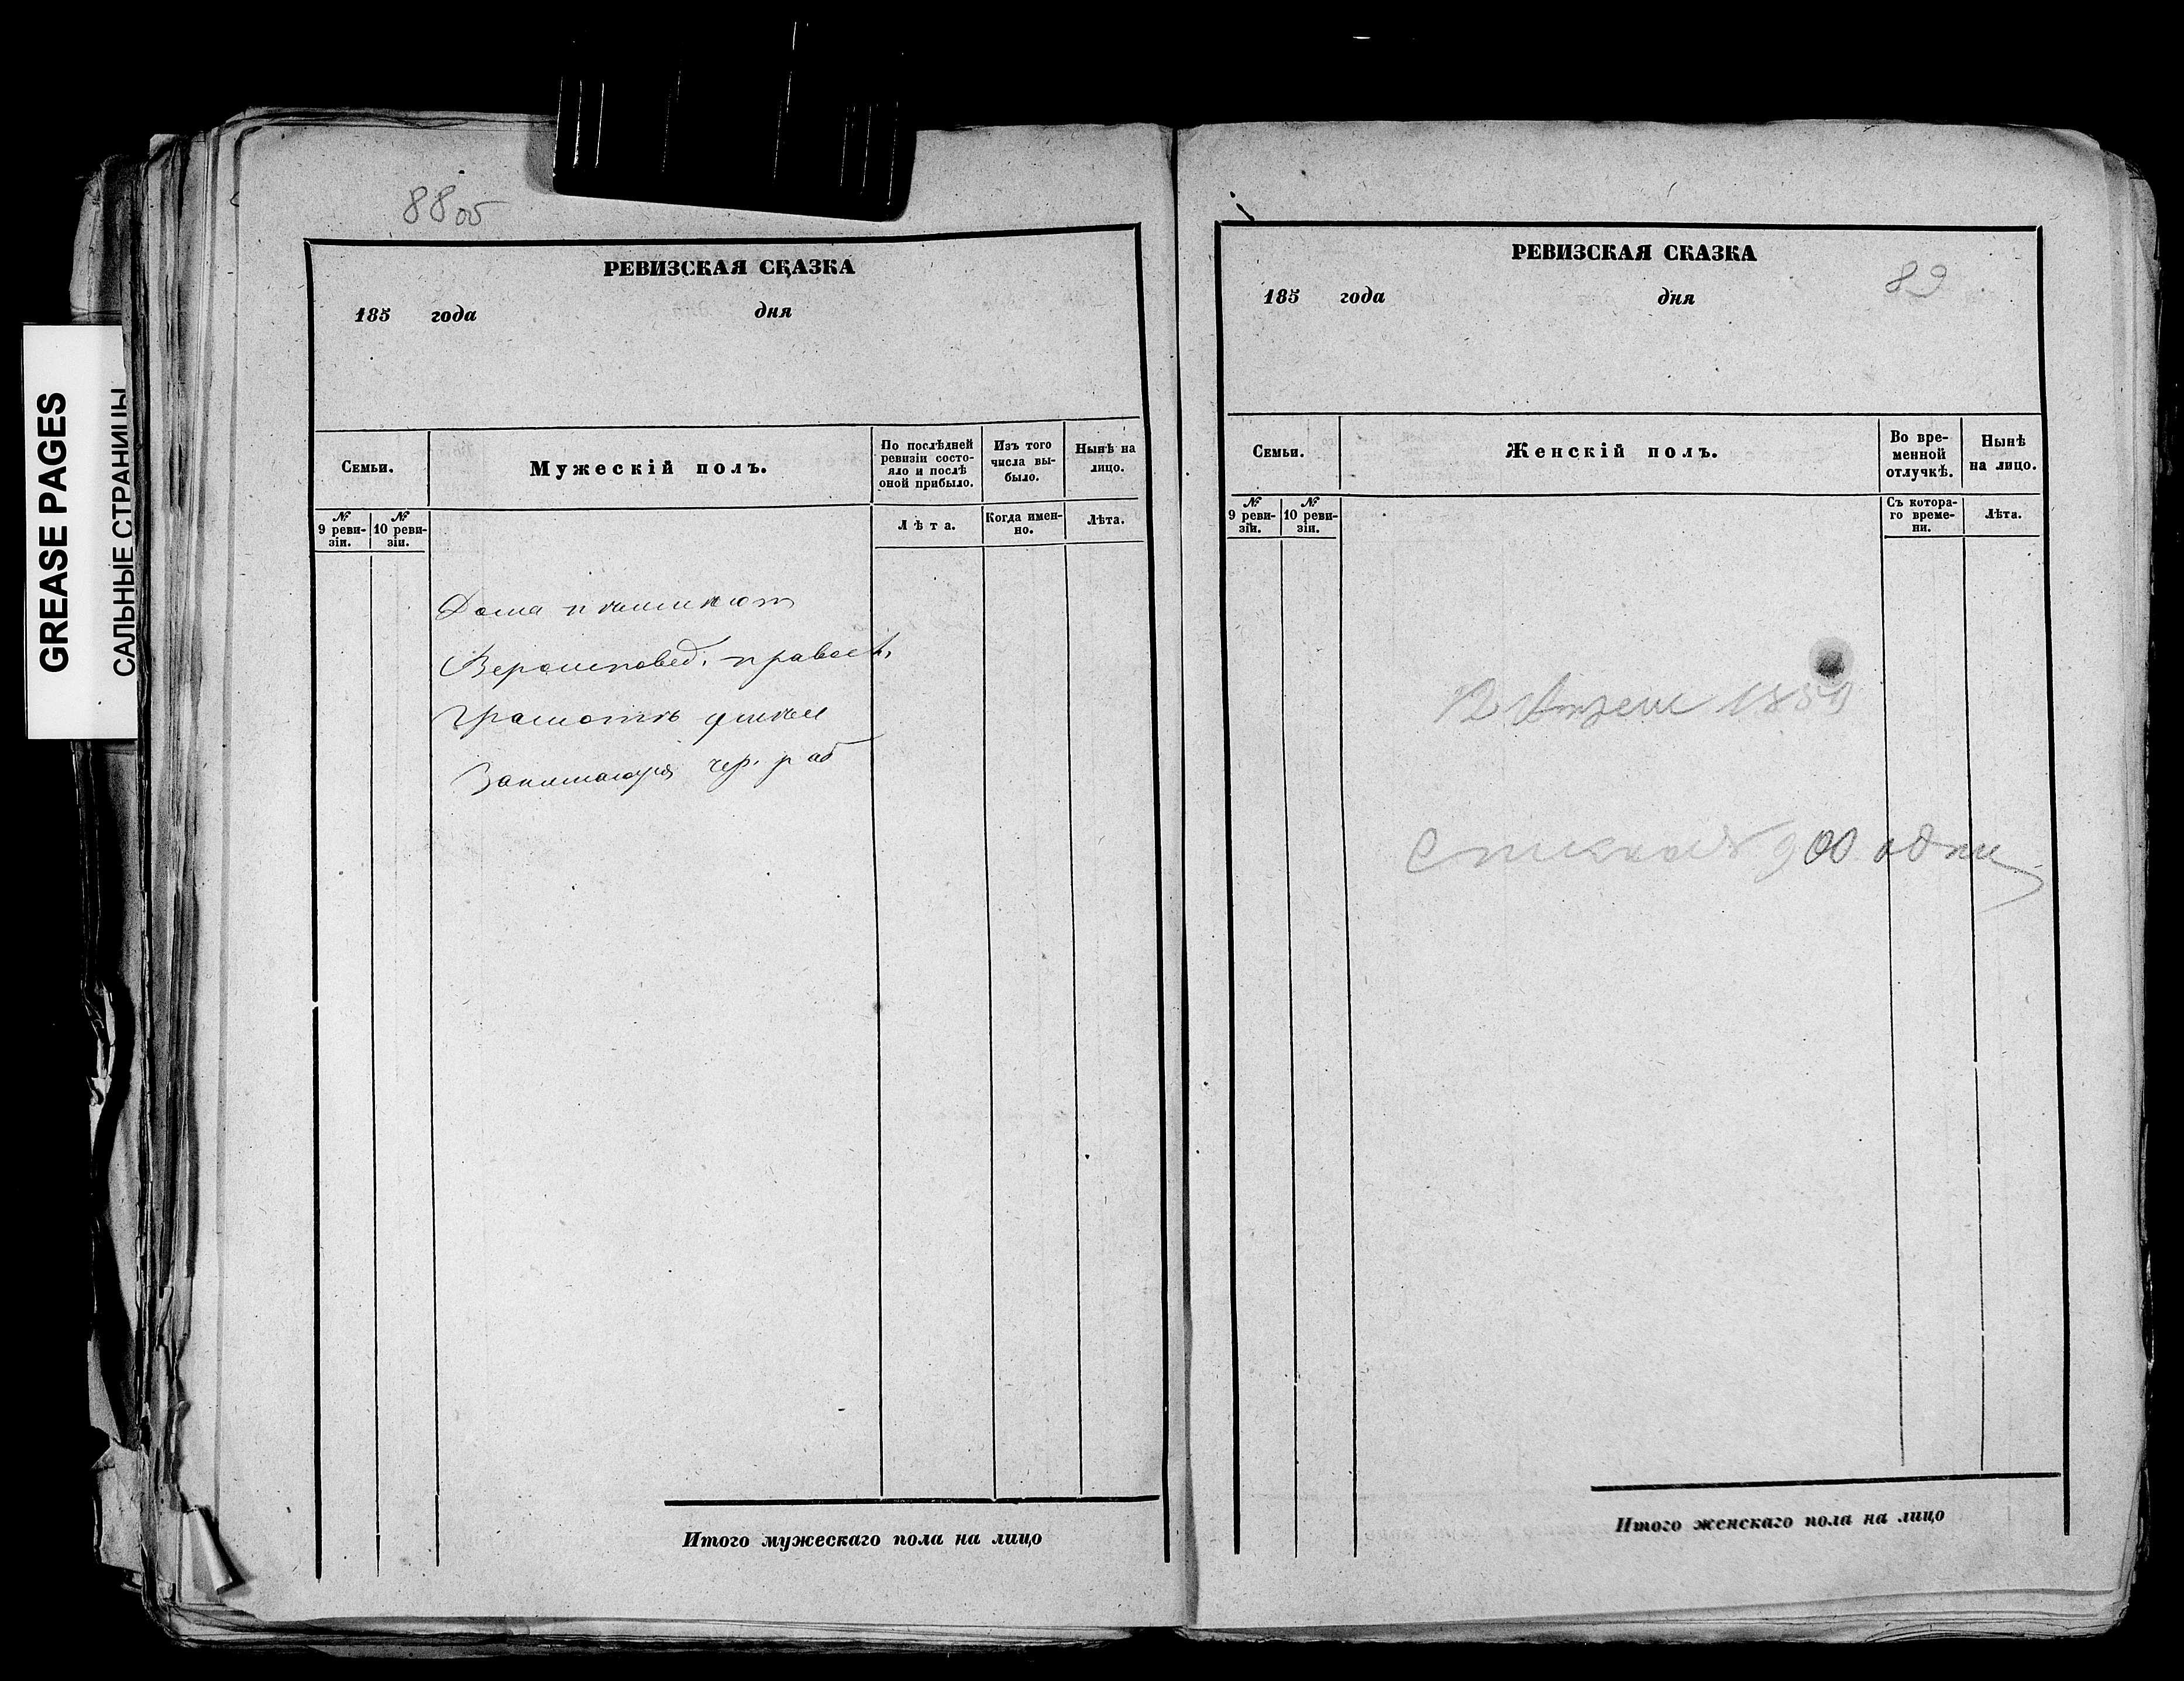 GREASE PAGES
САЛЬНЫЕ СТРАНИЦЫ
88об
РЕВИЗСКАЯ СКАЗКА
185 года дня
Семьи.
Мужескій полъ.
По послѣдней ревизіи состо-
яло и послѣ
оной прибыло.
Изъ того
числа вы-
было.
Нынѣ на
лицо.
№
9 реви-
зіи.
№
10 реви-
зіи.
Лѣта.
Когда имен-
но.
Лѣта.
Дома
Вероисповед. правосл.
грамоть
Занимающ чер. раб
Итого мужескаго пола на лицо
РЕВИЗСКАЯ СКАЗКА
89
185 года дня
Семьи.
Женскій полъ.
Во вре-
менной
отлучкѣ.
Нынѣ
на лицо.
№
9 реви-
зіи.
№
10 реви-
зіи.
Съ котора-
го време-
ни.
Лѣта.
12 1859
900
Итого женскаго пола на лицо